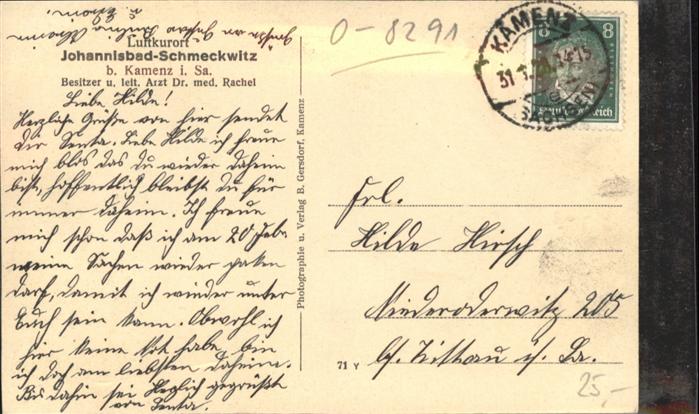 Grüsse an
u. Thoni.
Luftkurort
Johannisbad-Schmeckwitz
b. Kamenz i. Sa.
Besitzer u. leit. Arzt Dr. med. Rachel
Liebe Hilde!
Herzliche Grüße von hier sendet
Dir Senta. Liebe Hilde ich freue
mich blos das du wieder daheim
bist, hoffentlich bleibst du für
immer daheim. Ich freue
mich schon daß ich am 20. Febr.
meine Sachen wieder paken
darf, damit ich wieder unter
Euch sein kann. Obwohl ich
hier keine Not habe, bin
ich doch am liebsten daheim.
Bis dahin sei Herzlich gegrüßt
von Senta.
Photographie u. Verlag B. Gersdorf, Kamenz
0-8291
KAMENZ
31.1. 14-15
SACHSEN
8 8
Deutsches Reich
Frl.
Hilde Hirsch
Niederoderwitz 205
bf. Zittau i/. Sa.
71 Y
25,-